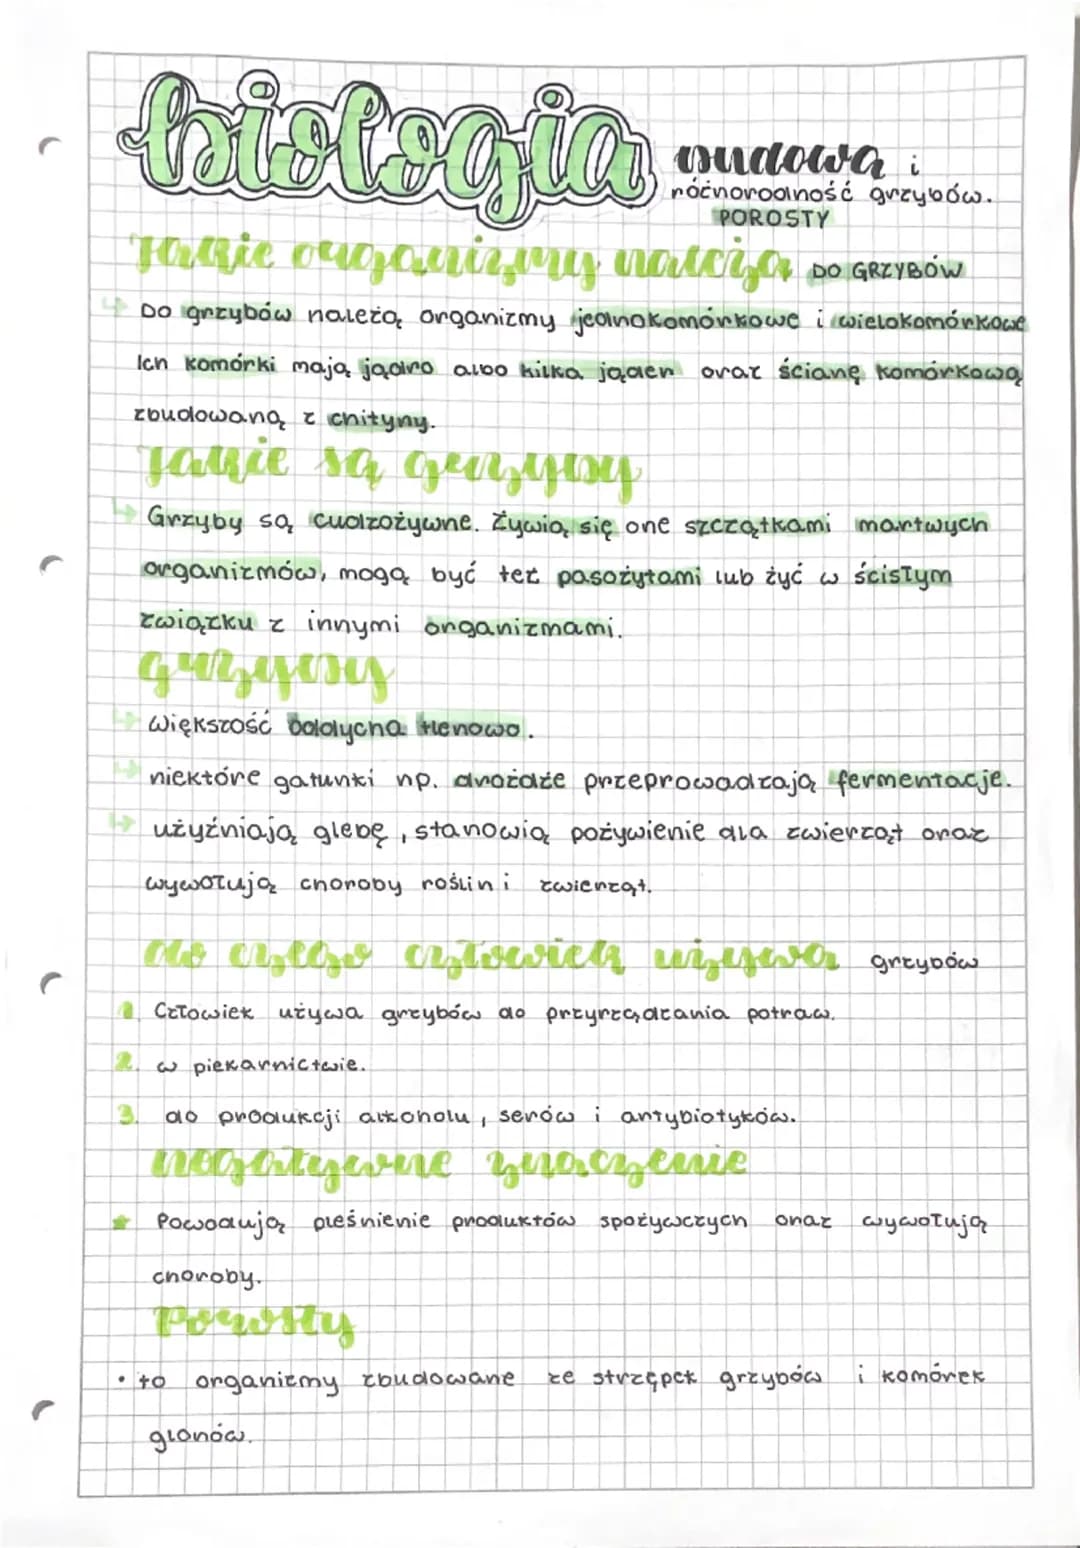 biologia budowa i
różnorodność grzybów.
POROSTY
Jakie organizmy należą DO GRZYBÓW
Do grzybów należą organizmy jednokomórkowe i wielokomórkowe
Ich komórki mają jądro albo kilka jąder oraz ścianę komórkową
zbudowaną z chityny.
Jakie są grzyby
Grzyby są cudzożywne. Żywią się one szczątkami martwych
organizmów, mogą być też pasożytami lub żyć w ścisłym
związku z innymi organizmami.
grzyby
Większość oddycha tlenowo.
niektóre gatunki np. drożdże przeprowadzają fermentacje.
użyźniają glebę, stanowią pożywienie dla zwierząt oraz
wywołują choroby roślin i zwierząt.
do czego człowiek używa grzybów
1. Człowiek używa grzybów do przyrządzania potraw.
2. w piekarnictwie.
3. do produkcji alkoholu, serów i antybiotyków.
negatywne znaczenie
Powodują pleśnienie produktów spożywczych oraz wywołują
choroby.
Porosty
• to organizmy zbudowane ze strzępek grzybów i komórek
glonów.